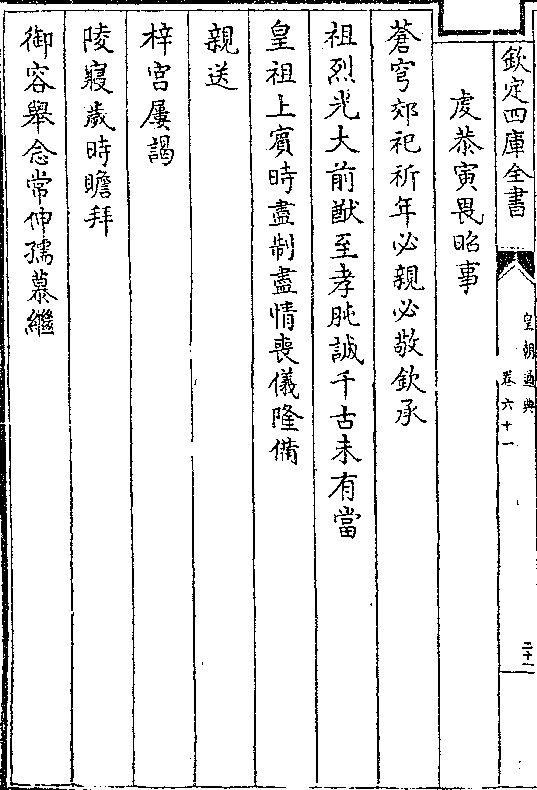 欽定四庫全書
皇朝通典
卷六十一
二十一
虔恭寅畏昭事
蒼穹郊祀祈年必親必敬欽承
祖烈光大前猷至孝肫誠千古未有當
皇祖上賓時盡制盡情喪儀隆備
親送
梓宮屢謁
陵寢歲時瞻拜
御容舉念常伸孺慕繼